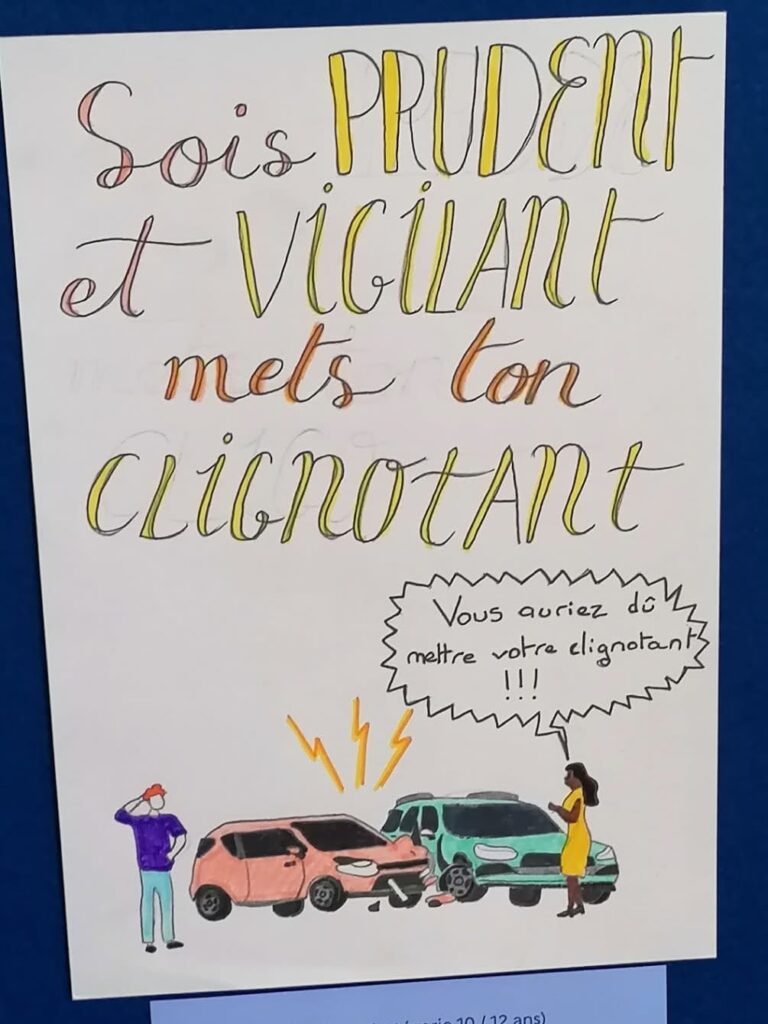 Sois PRUDENT
et ViGiLANT
mets ton
CLiGNOTANT
Vous auriez dû
mettre votre clignotant
!!!
10 / 12 ans)